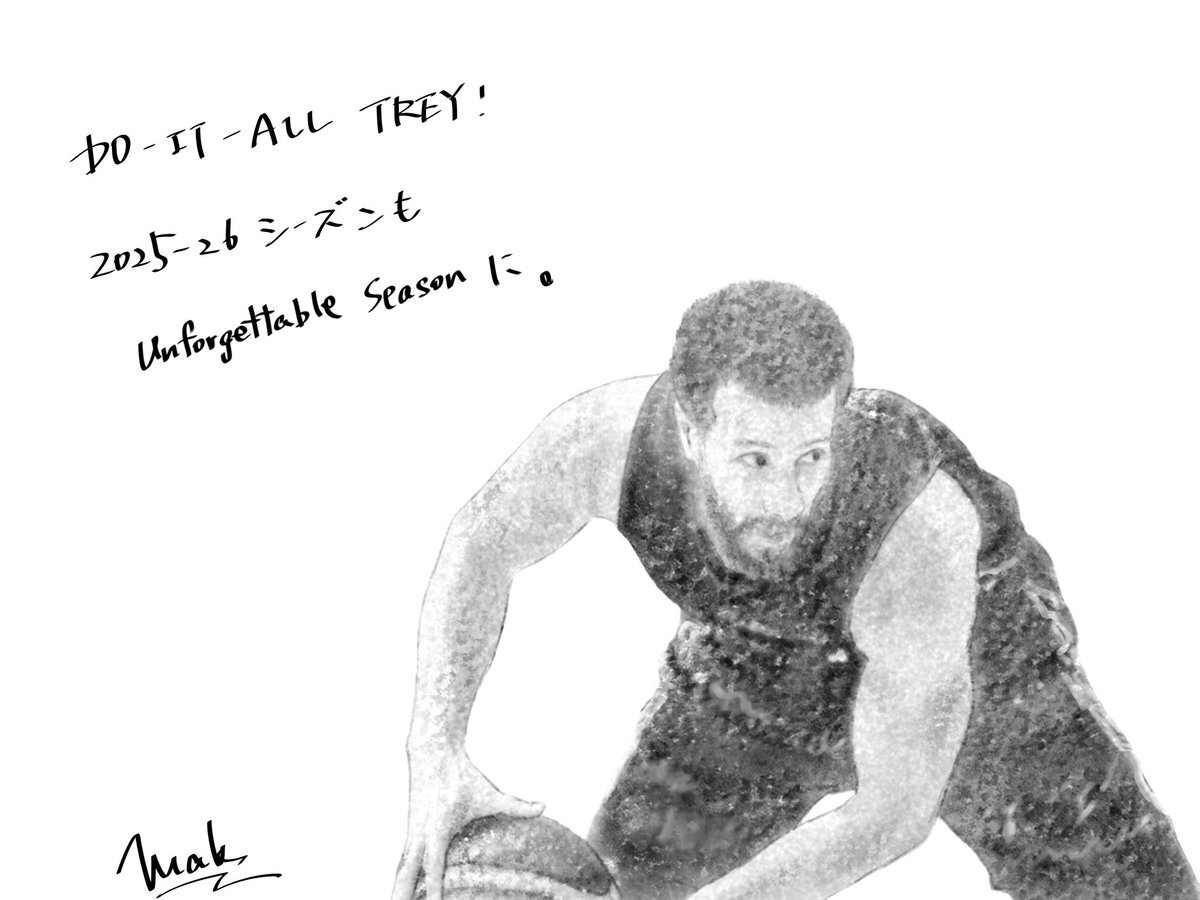 DO-IT-ALL TREY!
2025-26 シーズンも
Unforgettable Season に。
Mak